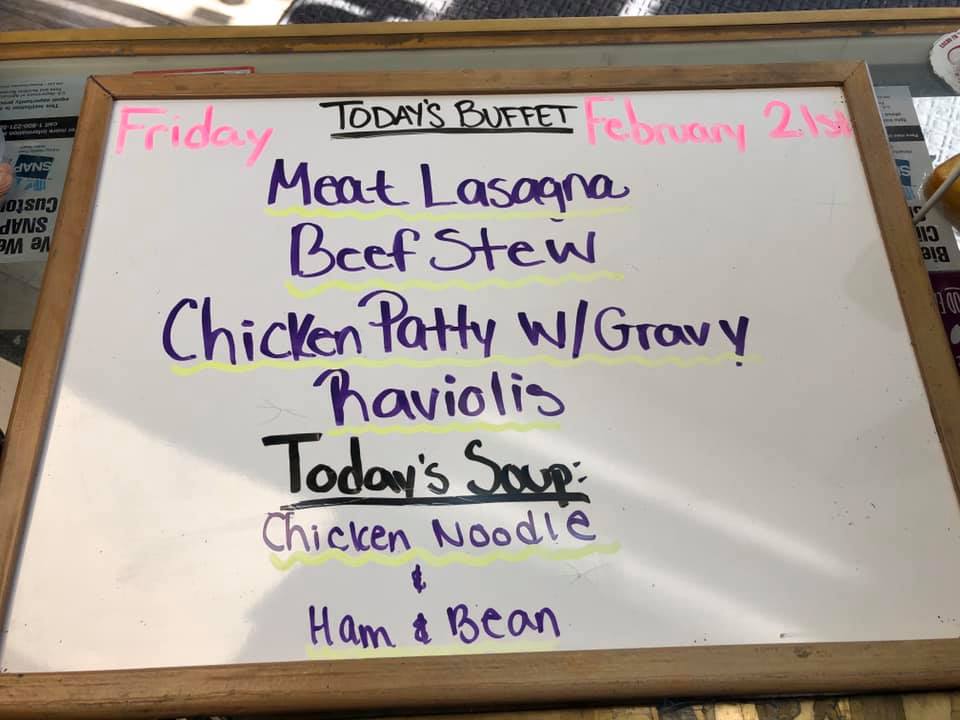 Friday TODAY'S BUFFET February 21st
Meat Lasagna
Beef Stew
Chicken Patty W/Gravy
Raviolis
Today's Soup:
Chicken Noodle
&
Ham & Bean
SNAP
We We
SNAP
Custo